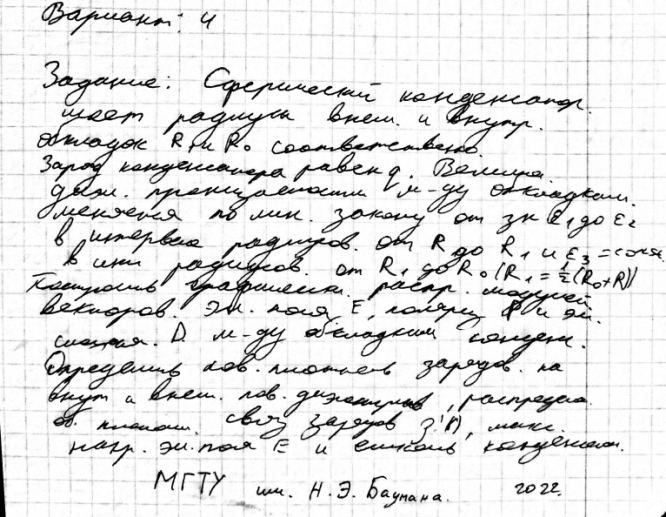 Вариант: 4
Задание: Сферический конденсатор.
имеет радиусы внеш. и внутр.
обкладок R и R₀ соответственно.
Заряд конденсатора равен q. Велич.
диэл. проницаемости м-ду обкладкам.
меняется по лин. закону от зн ε₁ до ε₂
в интервале радиусов. от R до R₁ и ε₃ = const.
в инт радиусов. от R₁ до R₀ (R₁ = ½(R₀+R))
Построить графически. распр. модулей
векторов. эл. поля E, поляриз P и эл.
смещения. D м-ду обкладкам конден.
Определить пов. плотность зарядов. на
внут и внеш. пов. диэлектрика, распредел.
об. плотн. связ зарядов ρ'(r), макс.
напр. эл. поля E и емкость конденсат.
МГТУ им. Н.Э. Баумана. 2022.